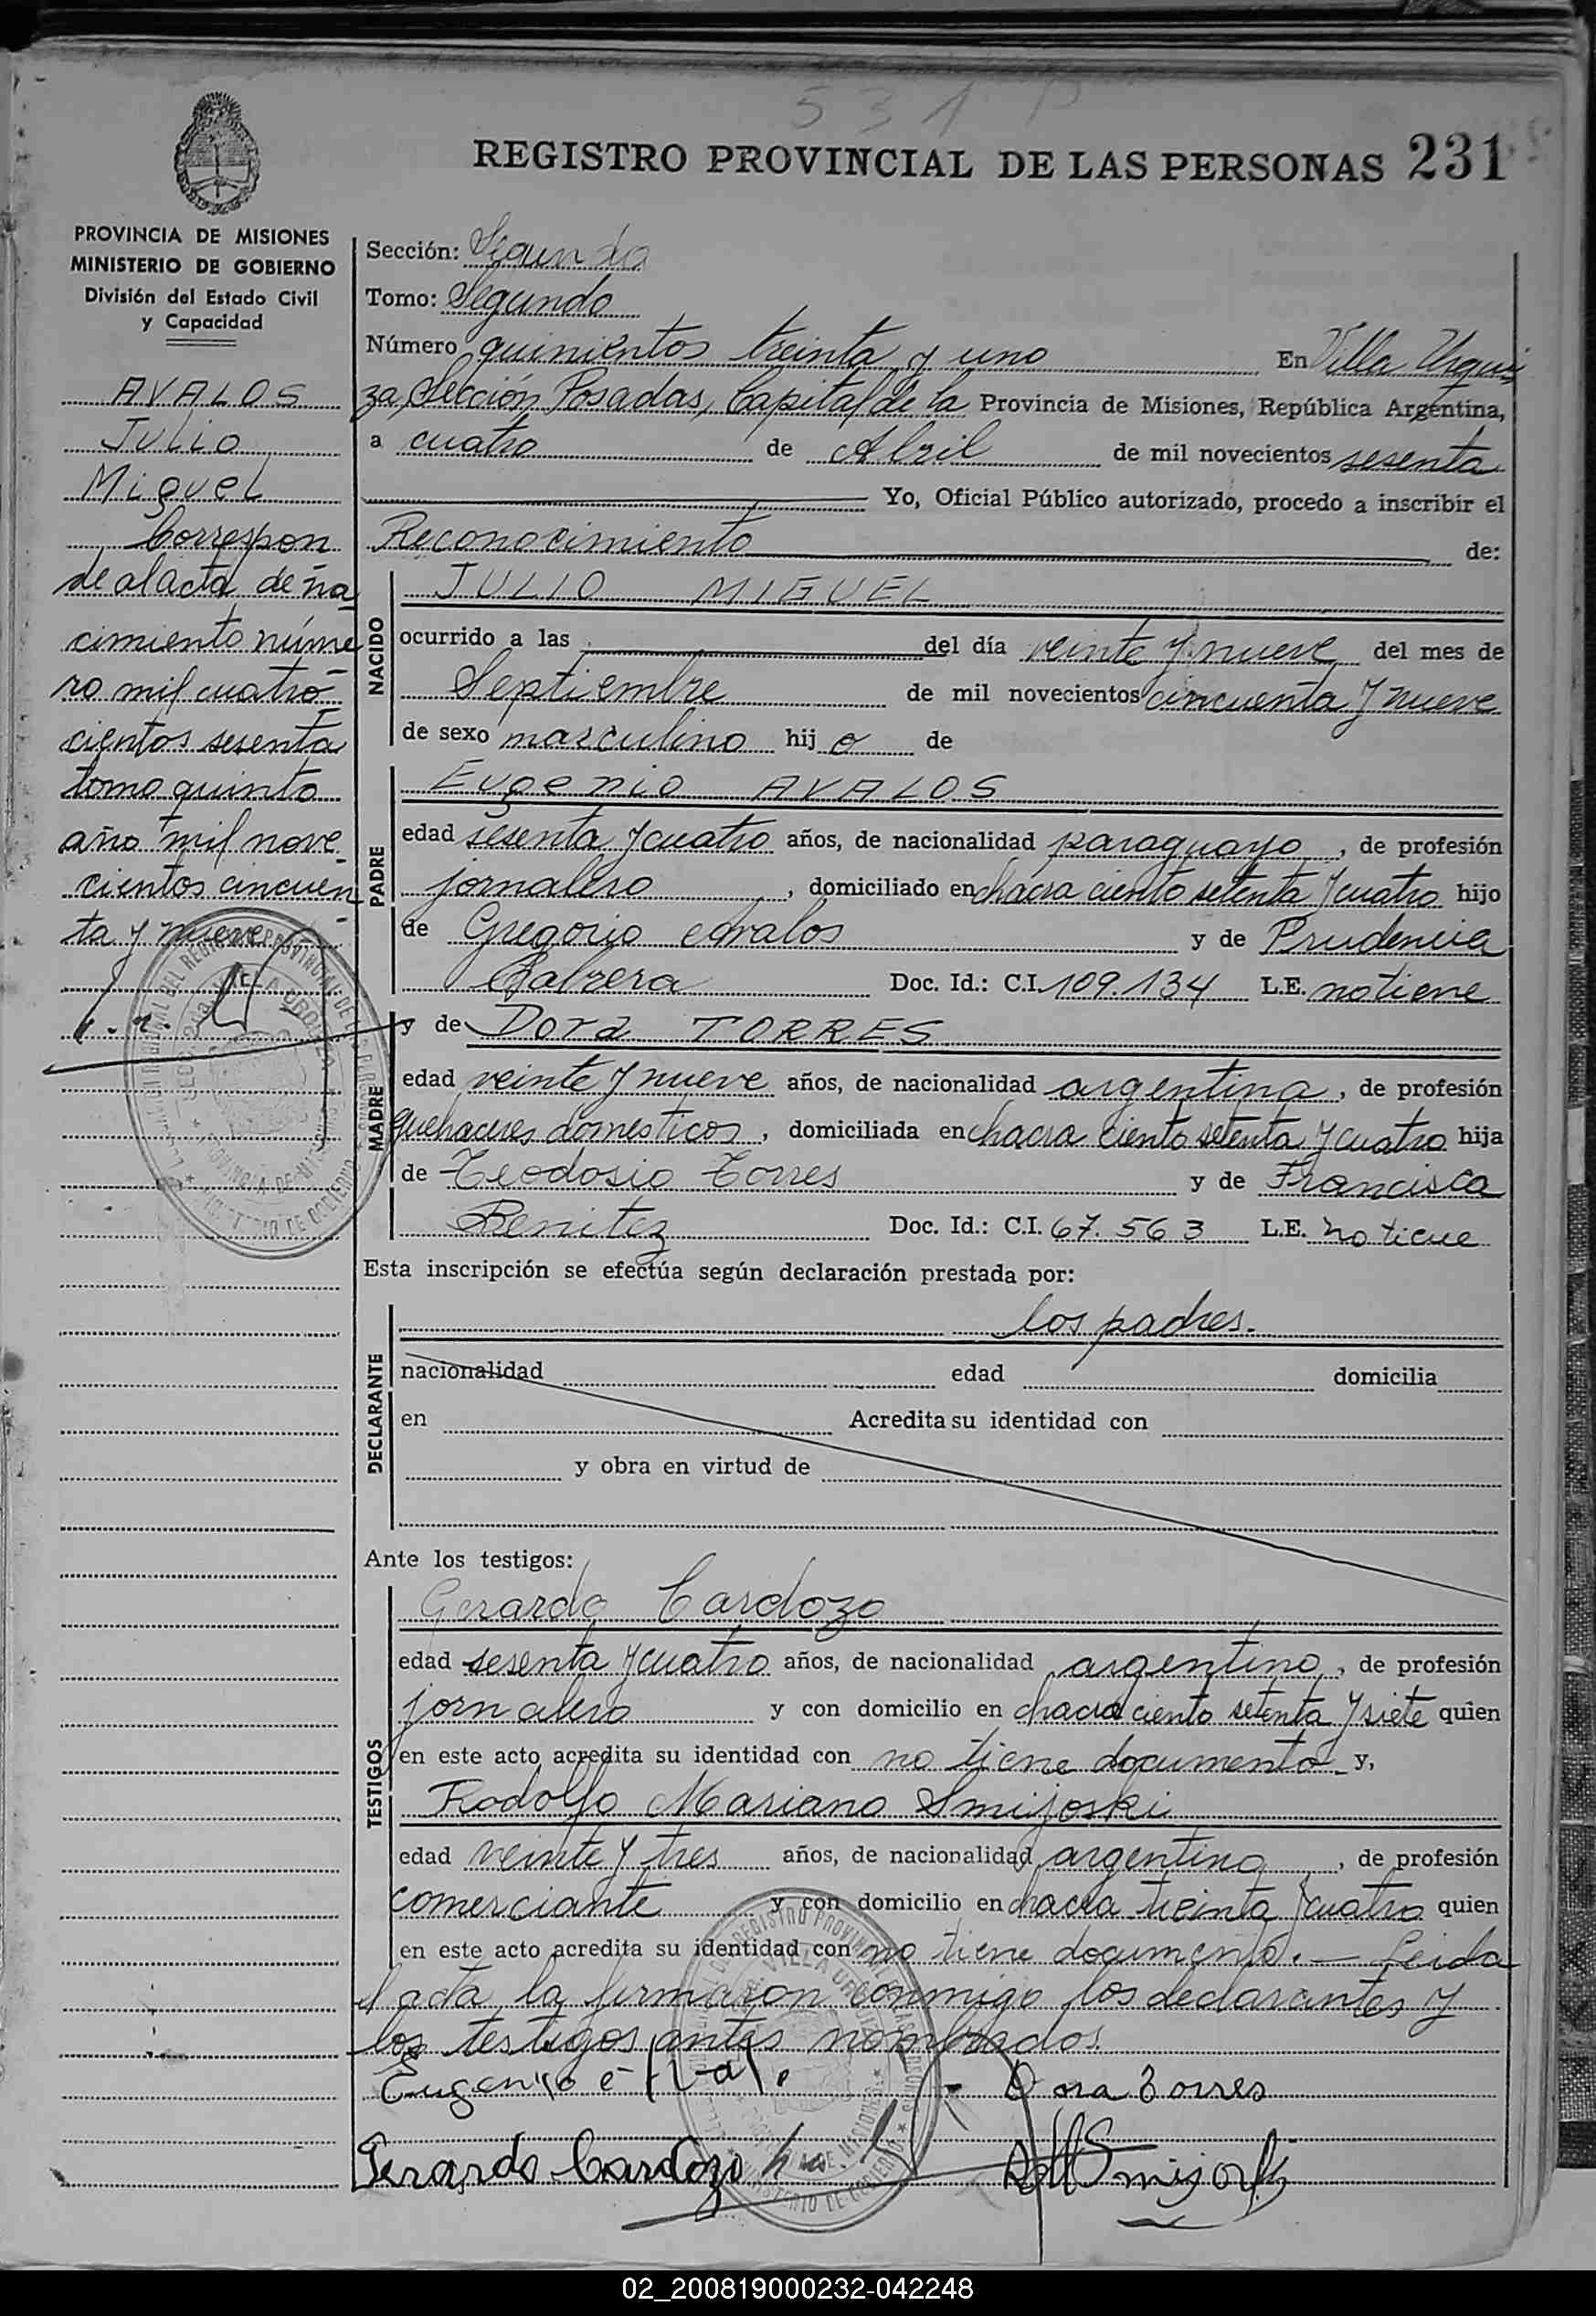 531
REGISTRO PROVINCIAL DE LAS PERSONAS 231
PROVINCIA DE MISIONES
MINISTERIO DE GOBIERNO
División del Estado Civil
y Capacidad
AVALOS
Julio
Miguel
Correspon
de al acta de na
cimiento núme
ro mil cuatro
cientos sesenta
tomo quinto
año mil nove
cientos cincuen
ta y nueve
Sección: Segunda
Tomo: Segundo
Número quinientos treinta y uno En Villa Urqui
za, Sección Posadas, Capital de la Provincia de Misiones, República Argentina,
a cuatro de Abril de mil novecientos sesenta
Yo, Oficial Público autorizado, procedo a inscribir el
Reconocimiento de:
NACIDO
JULIO MIGUEL
ocurrido a las del día veinte y nueve del mes de
Septiembre de mil novecientos cincuenta y nueve
de sexo masculino hijo de
PADRE
Eugenio AVALOS
edad sesenta y cuatro años, de nacionalidad paraguayo, de profesión
jornalero, domiciliado en chacra ciento setenta y cuatro hijo
de Gregorio Avalos y de Prudencia
Cabrera Doc. Id.: C.I. 109.134 L.E. no tiene
MADRE
y de Dora TORRES
edad veinte y nueve años, de nacionalidad argentina, de profesión
quehaceres domesticos, domiciliada en chacra ciento setenta y cuatro hija
de Teodosio Torres y de Francisca
Benitez Doc. Id.: C.I. 67.563 L.E. no tiene
Esta inscripción se efectúa según declaración prestada por:
DECLARANTE
los padres.
nacionalidad edad domicilia
en Acredita su identidad con
y obra en virtud de
Ante los testigos:
TESTIGOS
Gerardo Cardozo
edad sesenta y cuatro años, de nacionalidad argentino, de profesión
jornalero y con domicilio en chacra ciento setenta y siete quien
en este acto acredita su identidad con no tiene documento y,
Rodolfo Mariano Smijoski
edad veinte y tres años, de nacionalidad argentino, de profesión
comerciante y con domicilio en chacra treinta y cuatro quien
en este acto acredita su identidad con no tiene documento. — Leida
el acta, la firmaron conmigo los declarantes y
los testigos antes nombrados.
Eugenio Dora Torres
Gerardo Cardozo
02_200819000232-042248